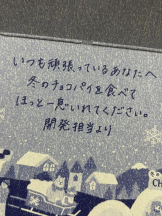 いつも頑張っているあなたへ
冬のチョコパイを食べて
ほっと一息いれてください。
開発担当より